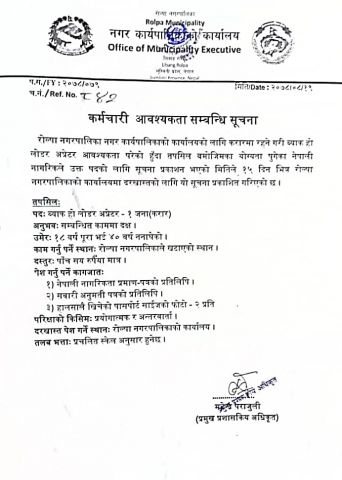 रोल्पा नगरपालिका
Rolpa Municipality
नगर कार्यपालिकाको कार्यालय
Office of Municipality Executive
Libang Rolpa
प.सं./F.Y : २०७८/०७९
मिति/Date : २०७८/०८/१९
च.नं./Ref. No.
कर्मचारी आवश्यकता सम्वन्धि सूचना
रोल्पा नगरपालिका नगर कार्यपालिकाको कार्यालयको लागि करारमा रहने गरी ब्याक हो
लोडर अप्रेटर आवश्यकता परेको हुँदा तपसिल बमोजिमका योग्यता पुगेका नेपाली
नागरिकले उक्त पदको लागि सूचना प्रकाशन भएको मितिले १५ दिन भित्र रोल्पा
नगरपालिकाको कार्यालयमा दरखास्तको लागि यो सूचना प्रकाशित गरिएको छ ।
तपसिल:
पद: ब्याक हो लोडर अप्रेटर - १ जना(करार)
अनुभव: सम्बन्धित काममा दक्ष ।
उमेर: १८ वर्ष पूरा भई ४० वर्ष ननाघेको ।
काम गर्नु पर्ने स्थान: रोल्पा नगरपालिकाले खटाएको स्थान ।
दस्तुर: पाँच सय रुपैंया मात्र ।
पेश गर्नु पर्ने कागजात:
१) नेपाली नागरिकता प्रमाण-पत्रको प्रतिलिपि ।
२) सवारी अनुमती पत्रको प्रतिलिपि ।
३) हालसालै खिचेको पासपोर्ट साईजको फोटो - २ प्रति
परिक्षाको किसिम: प्रयोगात्मक र अन्तरवार्ता ।
दरखास्त पेश गर्ने स्थान: रोल्पा नगरपालिकाको कार्यालय ।
तलब भत्ता: प्रचलित स्केल अनुसार हुनेछ ।
पराजुली
(प्रमुख प्रशासकिय अधिकृत)